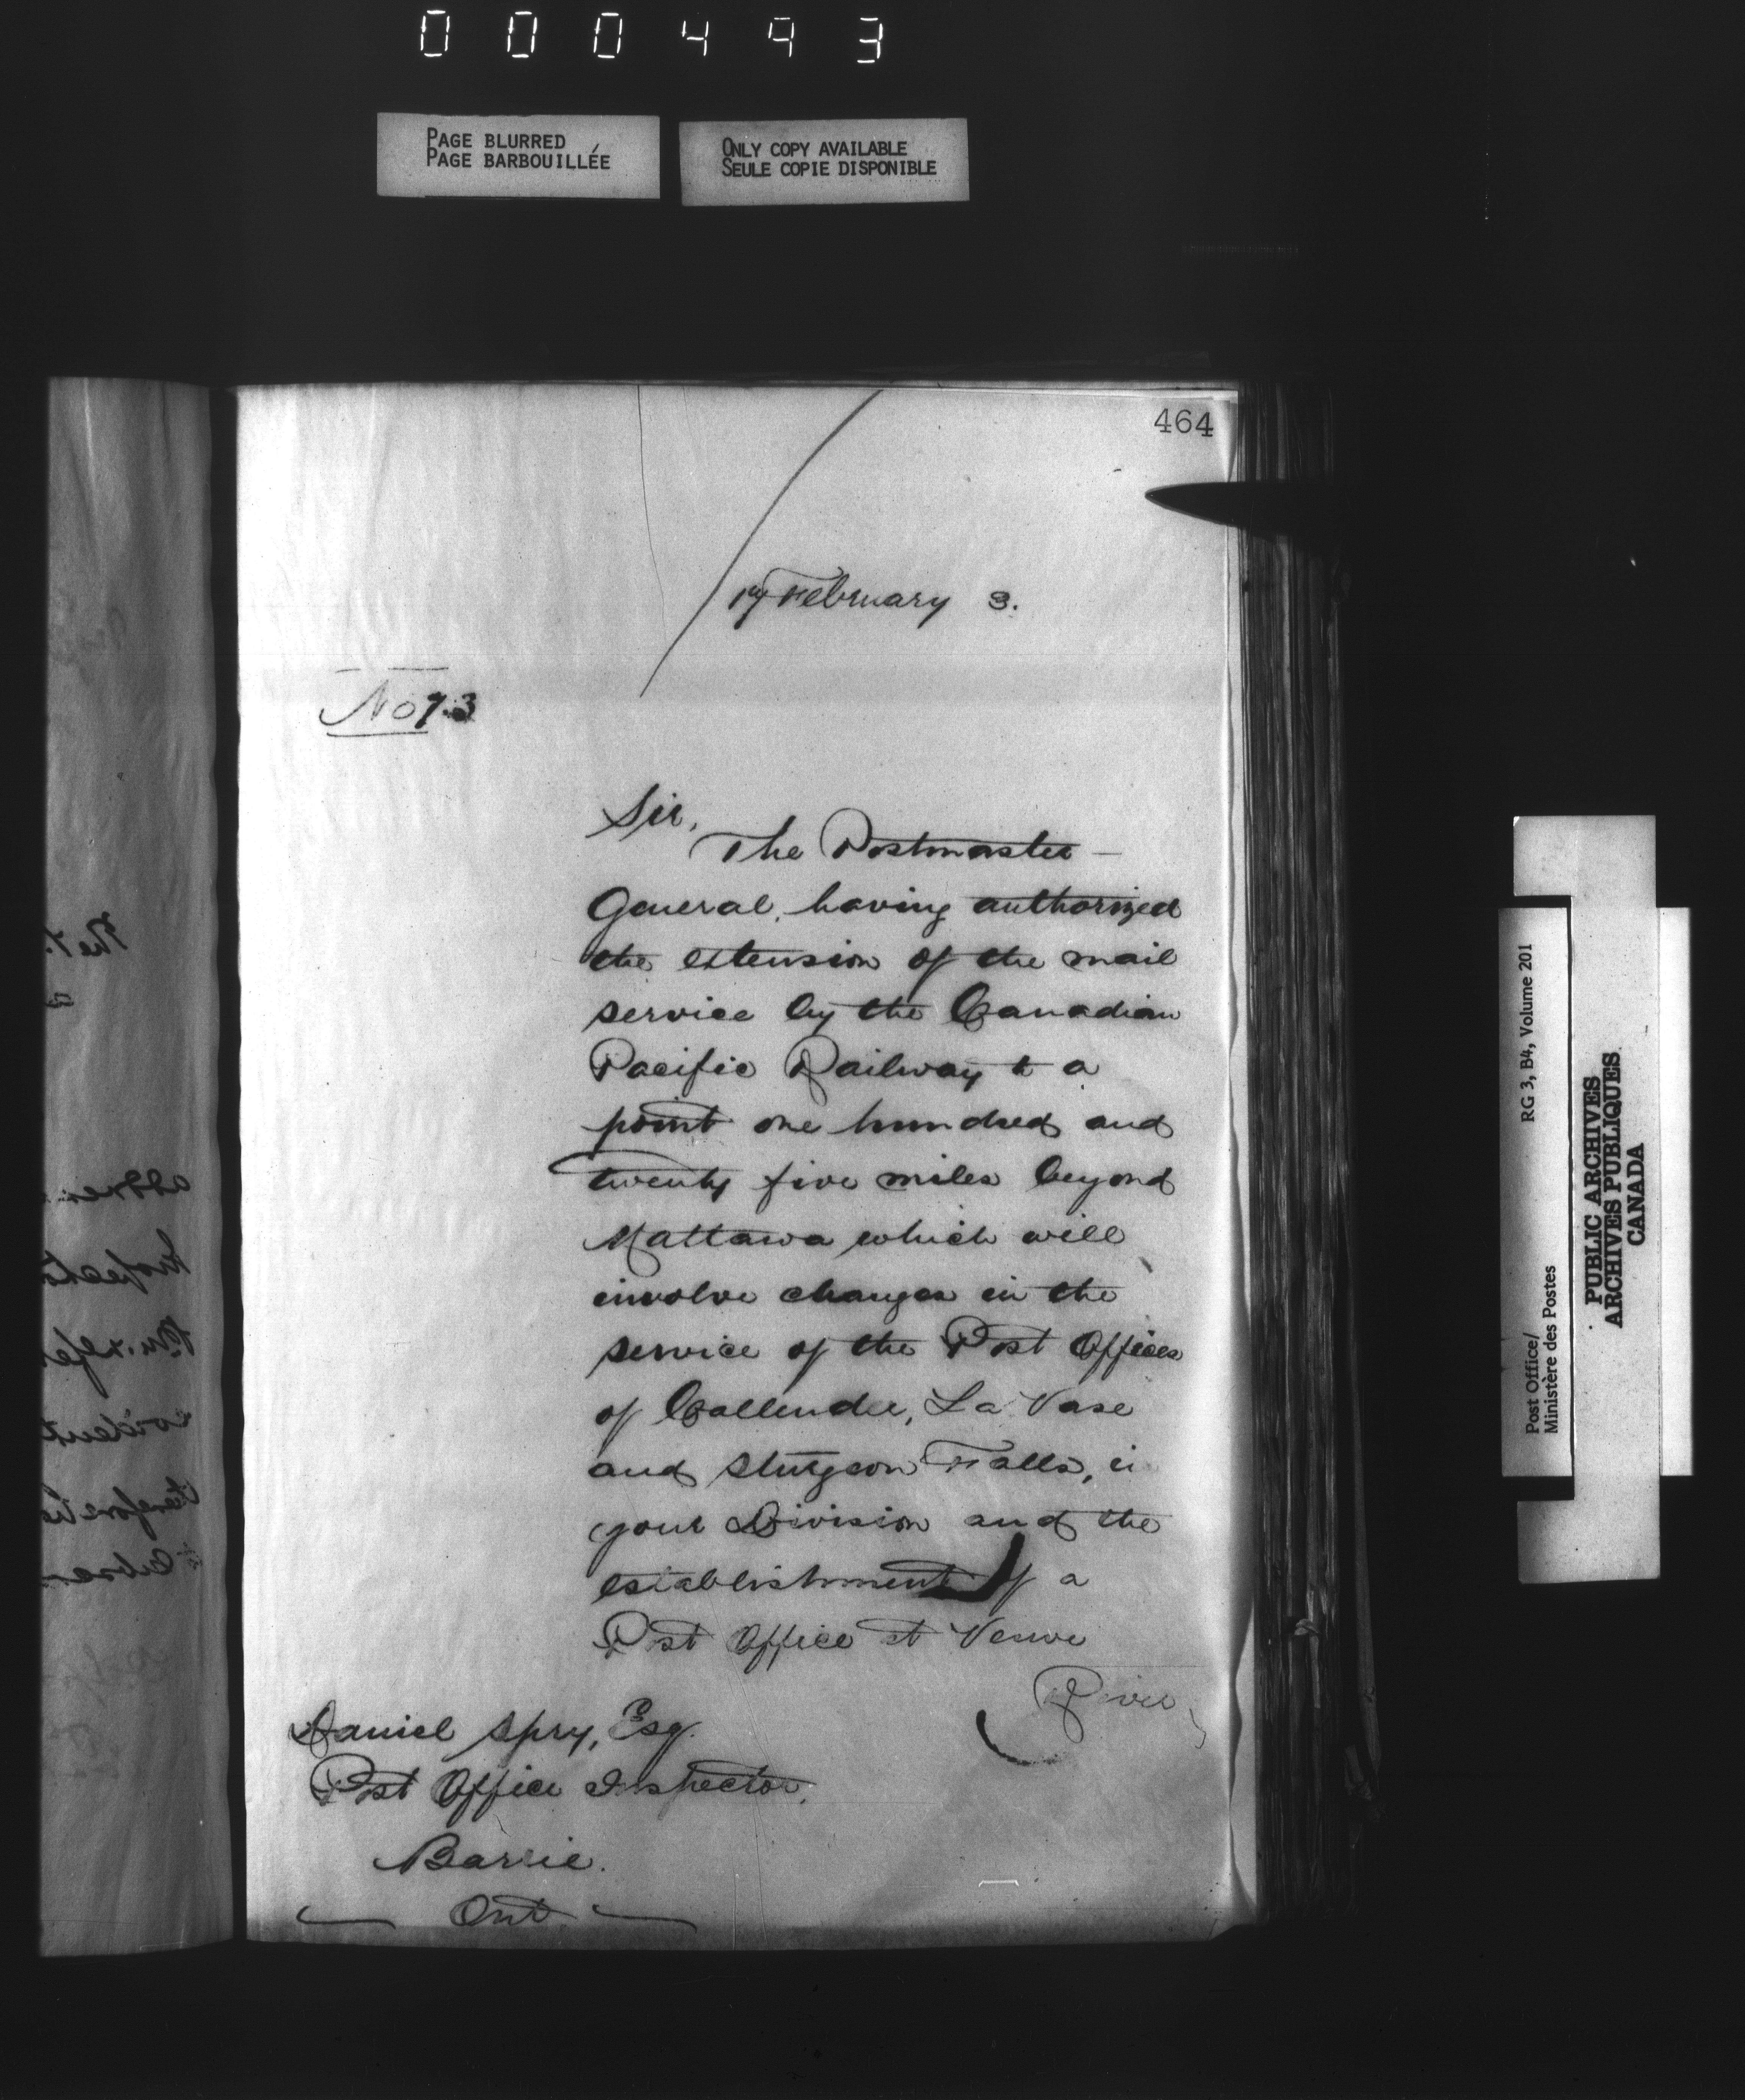 000493
PAGE BLURRED
PAGE BARBOUILLÉE
ONLY COPY AVAILABLE
SEULE COPIE DISPONIBLE
464
17 February 3.
No 73
Sir,
The Postmaster
General, having authorized
the extension of the mail
service by the Canadian
Pacific Railway to a
point one hundred and
twenty five miles beyond
Mattawa which will
involve changes in the
service of the Post Offices
of Callender, La Vase
and Sturgeon Falls, in
your Division and the
establishment of a
Post Office at Veuve
River,
Daniel Spry, Esq.
Post Office Inspector,
Barrie.
Ont.
RG 3, B4, Volume 201
Post Office/
Ministère des Postes
PUBLIC ARCHIVES
ARCHIVES PUBLIQUES
CANADA